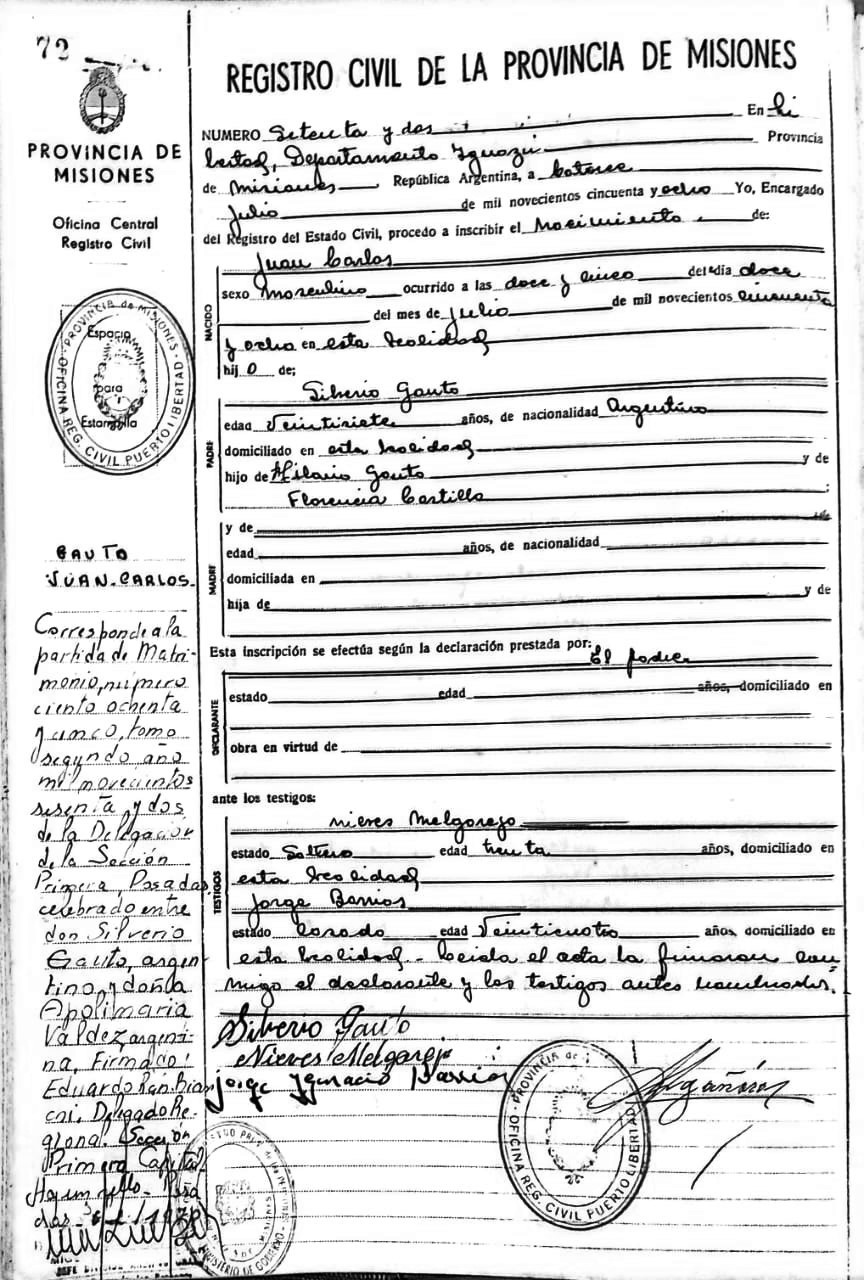 72
REGISTRO CIVIL DE LA PROVINCIA DE MISIONES
PROVINCIA DE
MISIONES
Oficina Central
Registro Civil
NUMERO Setenta y dos En Li
bertad, Departamento Iguazú Provincia
de Misiones República Argentina, a Catorce
Julio de mil novecientos cincuenta y ocho Yo, Encargado
del Registro del Estado Civil, procedo a inscribir el Nacimiento de:
NACIDO
Juan Carlos
sexo Masculino ocurrido a las doce y cinco del dia doce
del mes de Julio de mil novecientos cincuenta
y ocho en esta localidad
hij o de;
PADRE
Silverio Gauto
edad Veintisiete años, de nacionalidad Argentino
domiciliado en esta localidad
hijo de Hilario Gauto y de
Florencia Castillo ;
MADRE
y de
edad años, de nacionalidad
domiciliada en
hija de y de
Esta inscripción se efectúa según la declaración prestada por: El padre
DECLARANTE
estado edad años, domiciliado en
obra en virtud de
ante los testigos:
TESTIGOS
Nieves Melgarejo
estado Soltero edad treinta años, domiciliado en
esta localidad
Jorge Barrios
estado Casado edad Veinticuatro años, domiciliado en
esta localidad. Leida el acta la firmaron con
migo el declarante y los testigos antes nombrados.
Silverio Gauto
Nieves Melgarejo
Jorge Ygnacio Barrios
PROVINCIA de MISIONES - OFICINA REG. CIVIL PUERTO LIBERTAD
Espacio
para
Estampilla
GAUTO
JUAN CARLOS
Corresponde a la
partida de Matri-
monio, número
ciento ochenta
y cinco, tomo
segundo año
mil novecientos
sesenta y dos
de la Delegación
de la Sección
Primera Posadas,
celebrado entre
don Silverio
Gauto, argen-
tino, y doña
Apolinaria
Valdez, argenti-
na, Firmado:
Eduardo
Delegado Re-
gional Sección
Primera Capital
Hay un sello - Posa
das
MINISTERIO DE GOBIERNO
PROVINCIA de
OFICINA REG. CIVIL PUERTO LIBERTAD